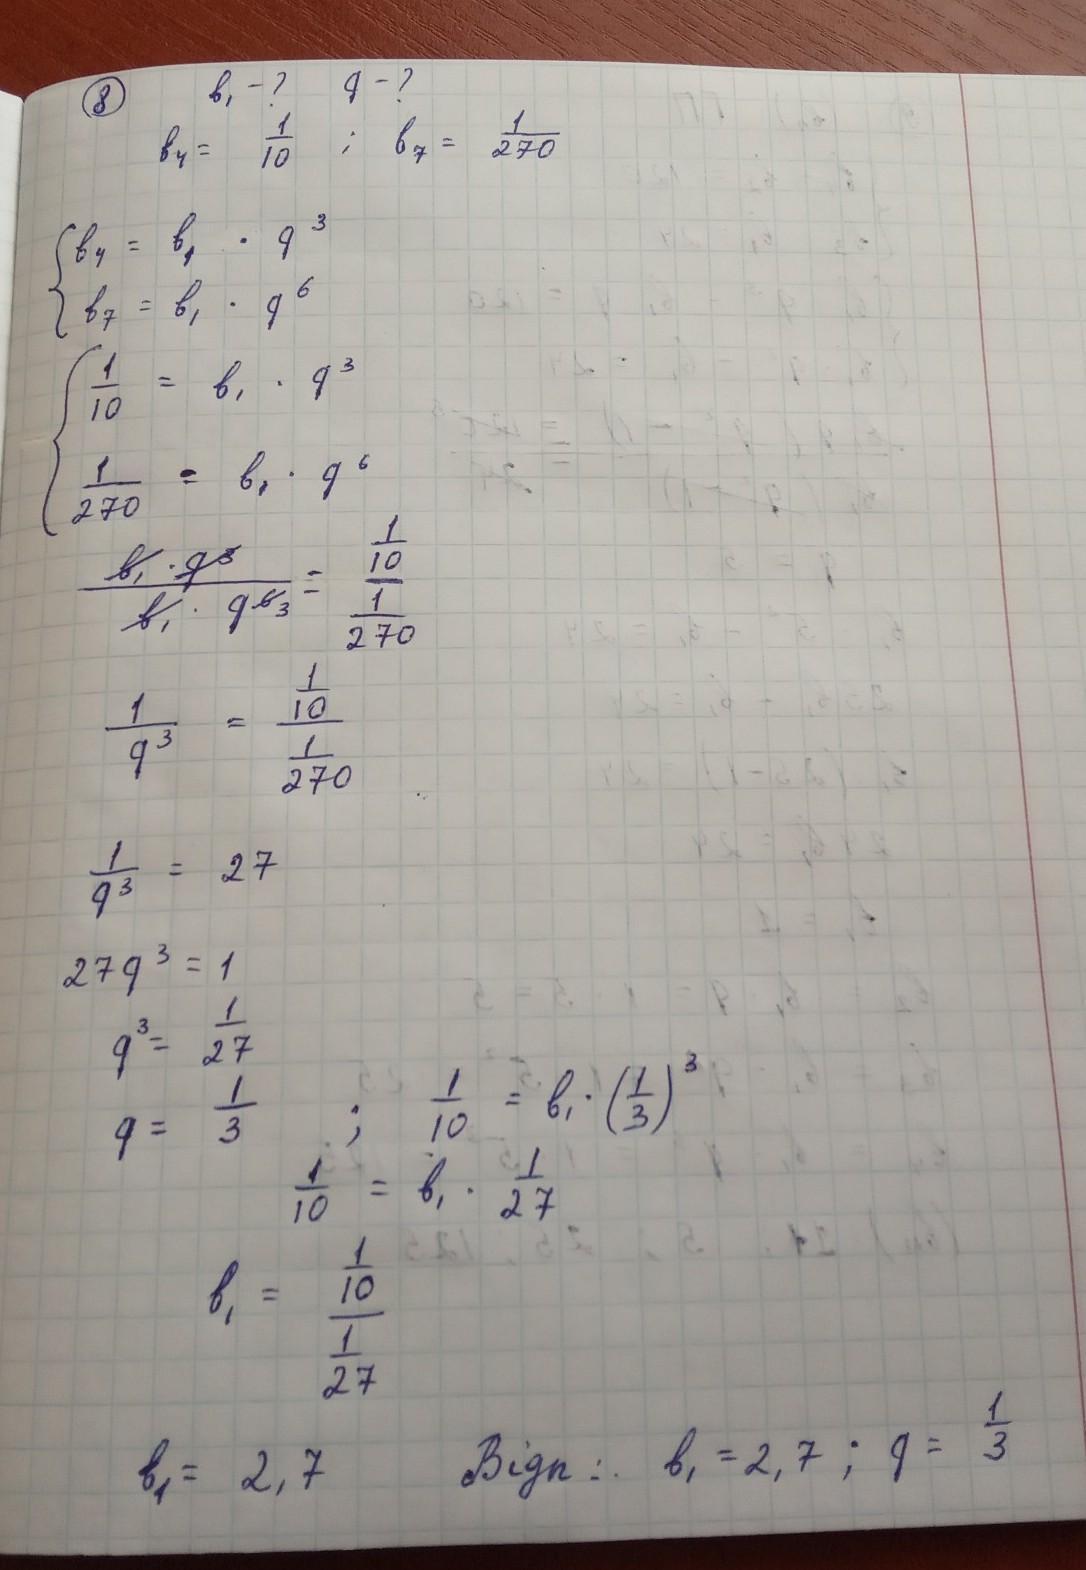 8 b₁ - ? q - ?
b₄ = 1/10 ; b₇ = 1/270
b₄ = b₁ · q³
b₇ = b₁ · q⁶
1/10 = b₁ · q³
1/270 = b₁ · q⁶
(b₁ · q³)/(b₁ · q⁶ ³) = (1/10)/(1/270)
1/q³ = (1/10)/(1/270)
1/q³ = 27
27q³ = 1
q³ = 1/27
q = 1/3 ; 1/10 = b₁ · (1/3)³
1/10 = b₁ · 1/27
b₁ = (1/10)/(1/27)
b₁ = 2,7 Відп:. b₁ = 2,7 ; q = 1/3